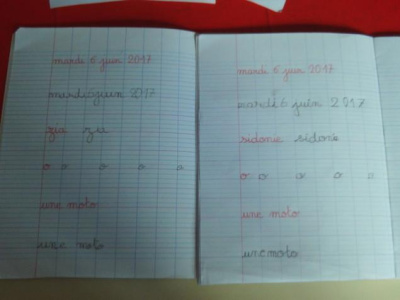 mardi 6 juin 2017
mardi 6 juin 2017
zia zia
o o o o o
une moto
une moto
mardi 6 juin 2017
mardi 6 juin 2017
sidonie sidonie
o o o o o
une moto
une moto